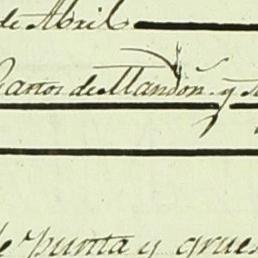 de Abril
Gastos de Mandon. y
de punta y grue